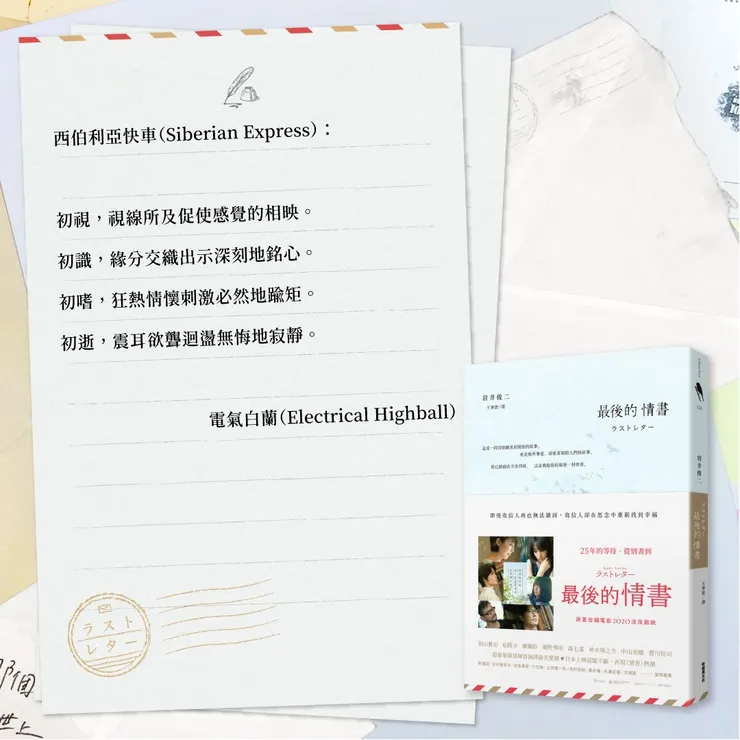 西伯利亞快車(Siberian Express)：
初視，視線所及促使感覺的相映。
初識，緣分交織出示深刻地銘心。
初嗜，狂熱情懷刺激必然地踰矩。
初逝，震耳欲聾迴盪無悔地寂靜。
電氣白蘭(Electrical Highball)
ラスト
レター
岩井俊二
王華懋/譯
最後的情書
ラストレター
即使收信人再也無法讀到，寫信人卻在思念中重新找到幸福
25年的等待，從情書到
ラストレター
最後的情書
原著改編電影2020浪漫獻映
岩井俊二
ラストレター
最後的情書
王華懋 譯
那個
世上